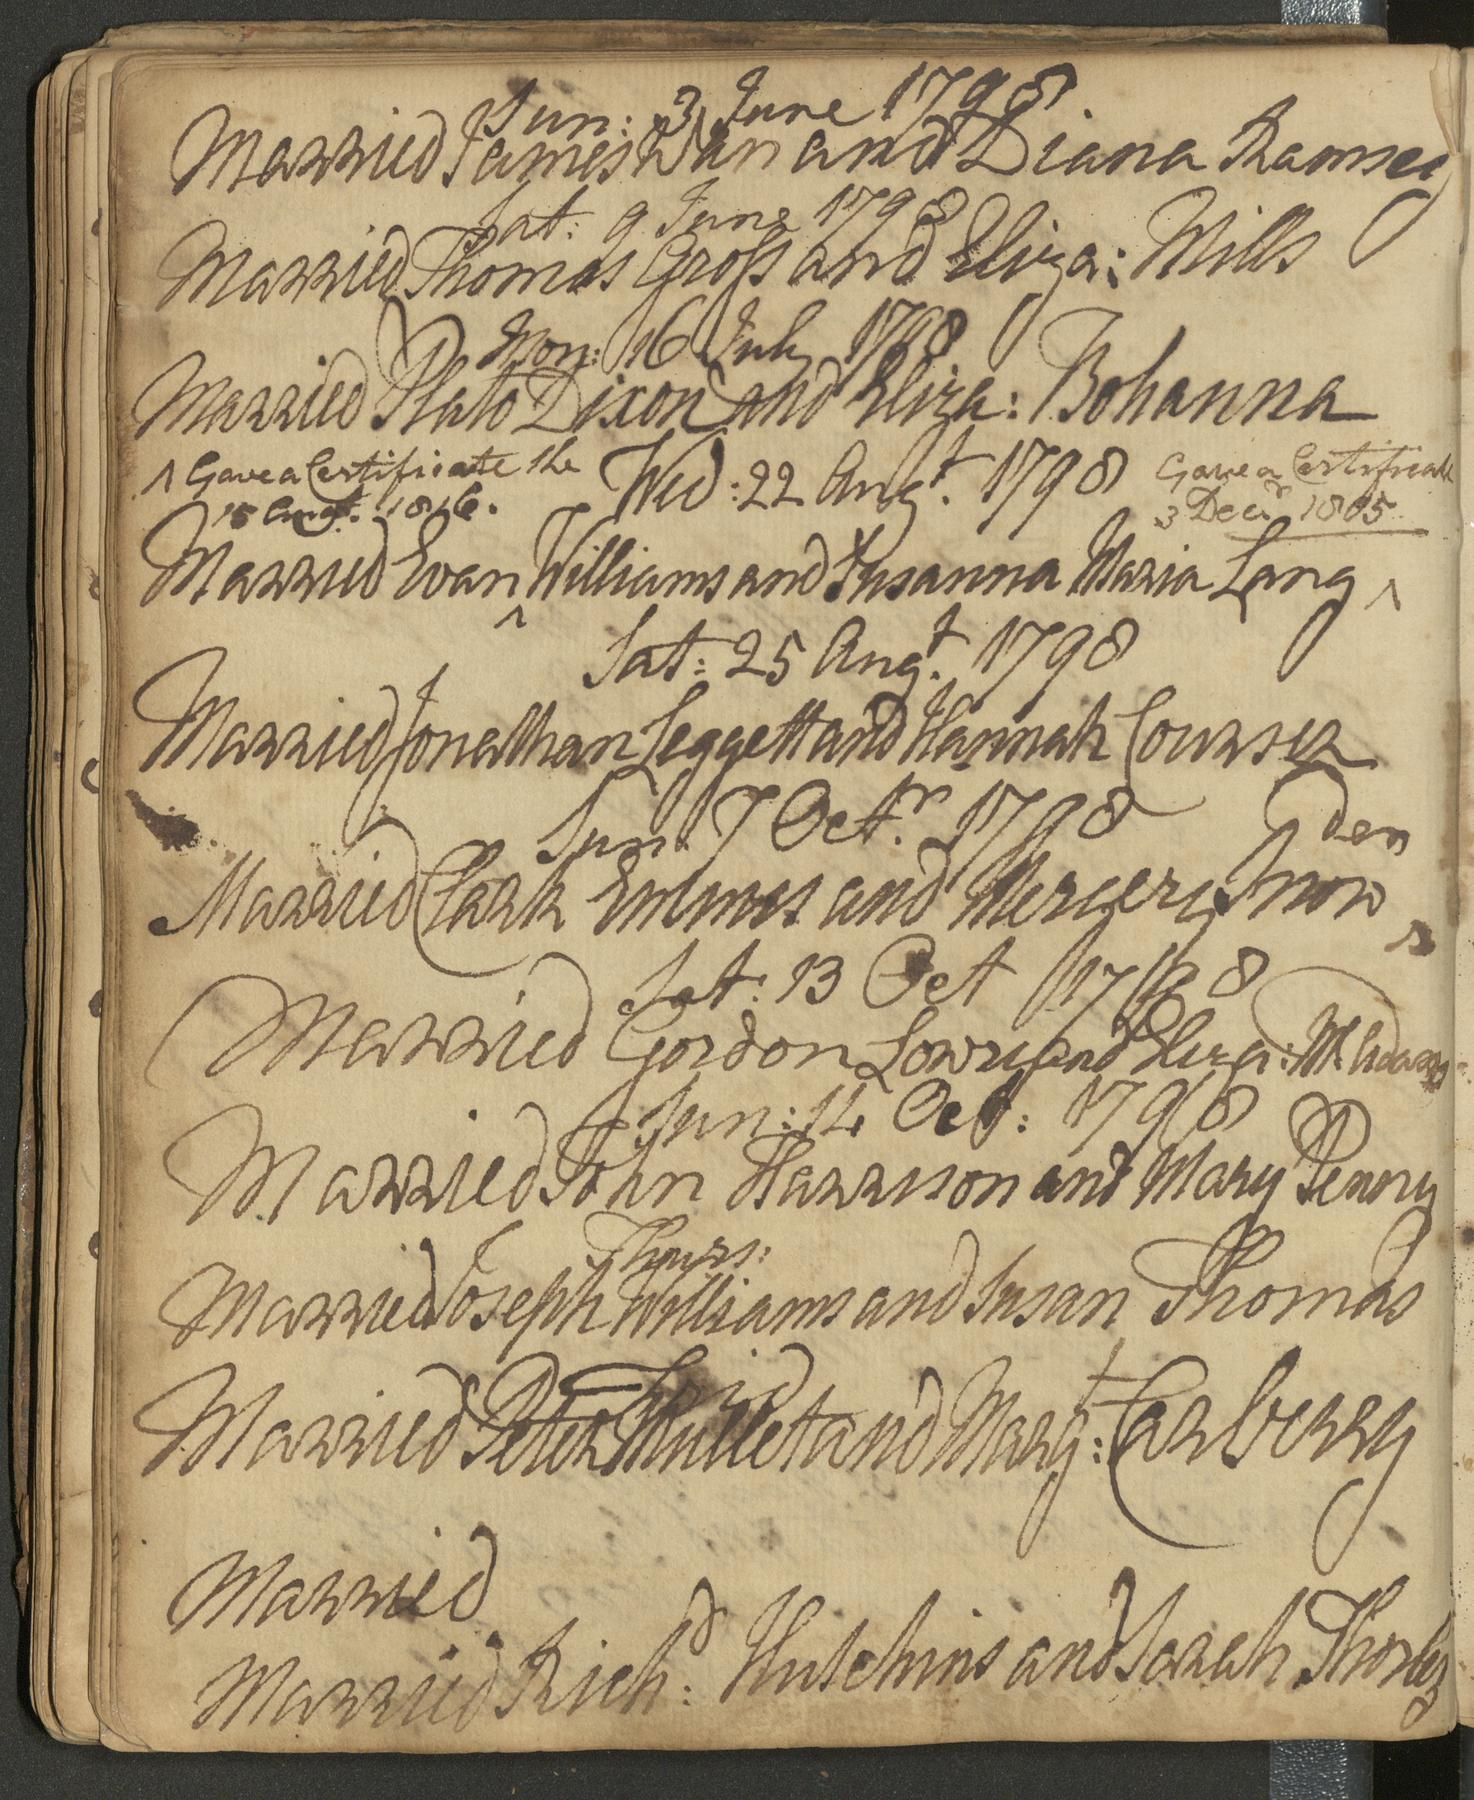 Sun: 3 June 1798
Married James Dun and Diana Ramsey
Sat: 9 June 1798
Married Thomas Gross and Eliza: Mills
Mon: 16 July 1798
Married Plato Dixon and Eliza: Bohanna
^ Gave a Certificate the
15 Augt. 1816.
Wed: 22 Augt. 1798
Gave a Certificate
3 Decr 1805
Married Evan ^ Williams and Susanna Maria Lang ^
Sat: 25 Augt. 1798
Married Jonathan Leggett and Hannah Courser
Sun. 7 Octr. 1798
den
Married Clark Emmes and Mergery Snow ^
Sat: 13 Oct 1798
Married Gordon Lowry and Eliza: McAdams
Sun: 14 Oct: 1798
Married John Harrison and Mary Penny
Thurs:
Married Joseph Williams and Susan Thomas
Frid
Married Peter Mullet and Margt: Carberry
Married
Married Richd: Hutchins and Sarah